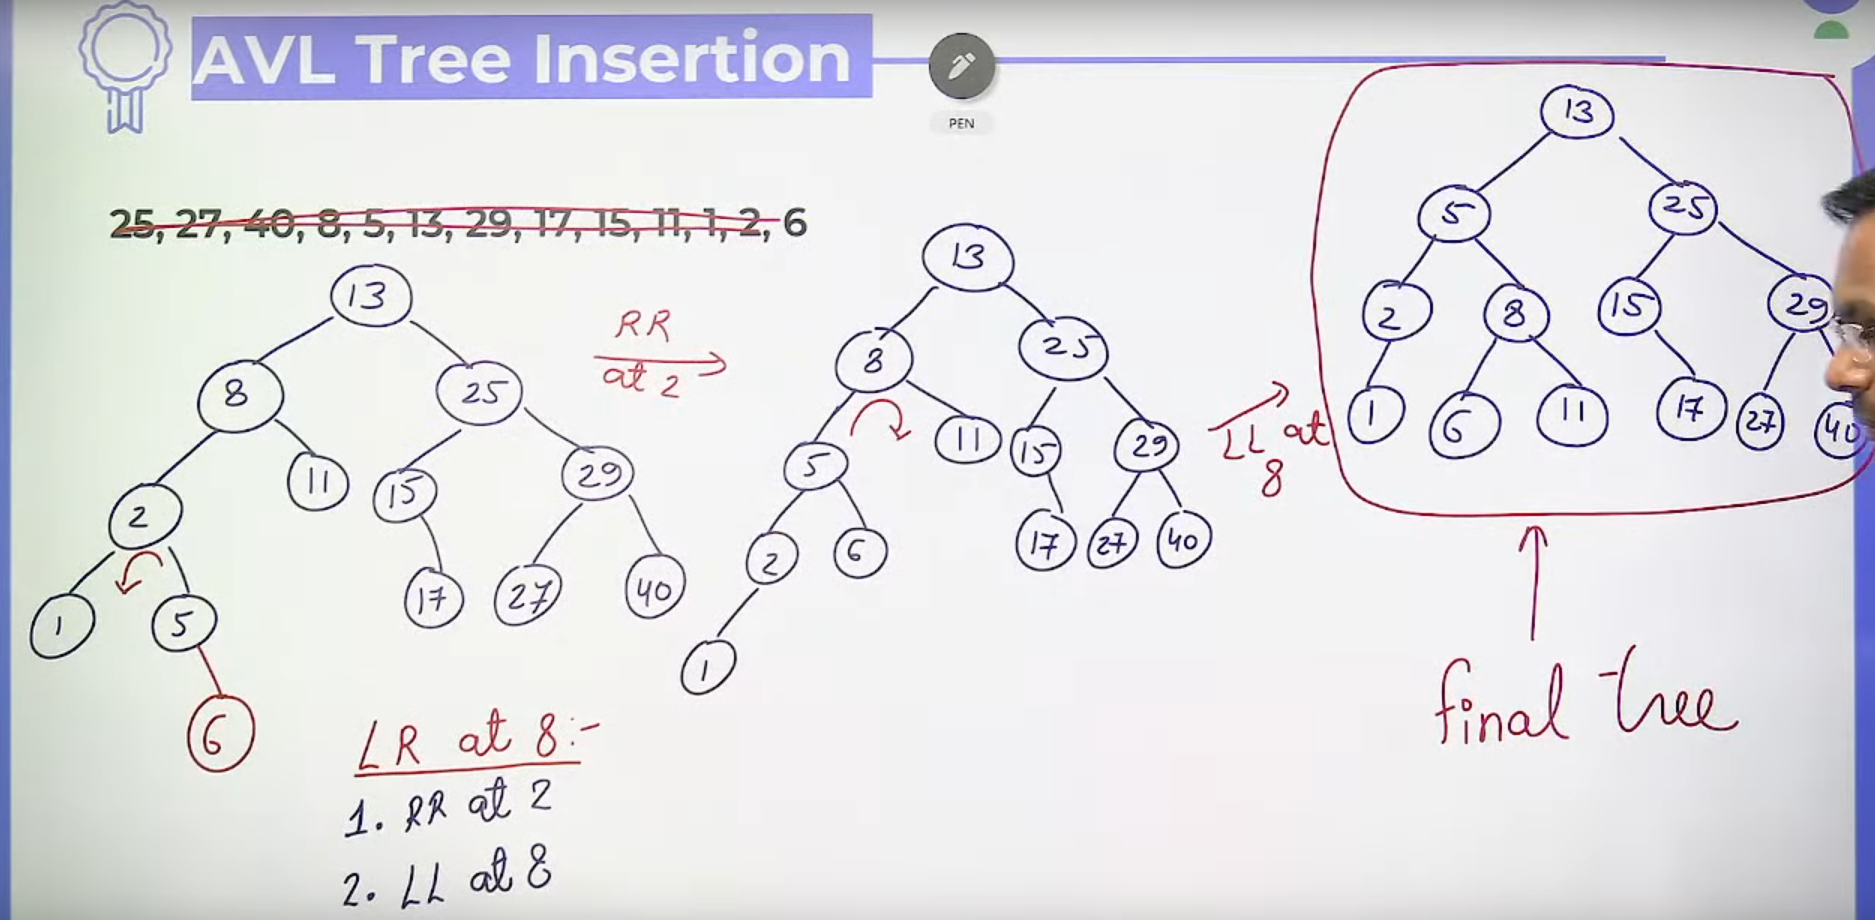 AVL Tree Insertion
PEN
25, 27, 40, 8, 5, 13, 29, 17, 15, 11, 1, 2, 6
13
8 25
2 11 15 29
1 5 17 27 40
6
RR
at 2
13
8 25
5 11 15 29
2 6 17 27 40
1
LL at
8
13
5 25
2 8 15 29
1 6 11 17 27 40
final tree
LR at 8:-
1. RR at 2
2. LL at 8